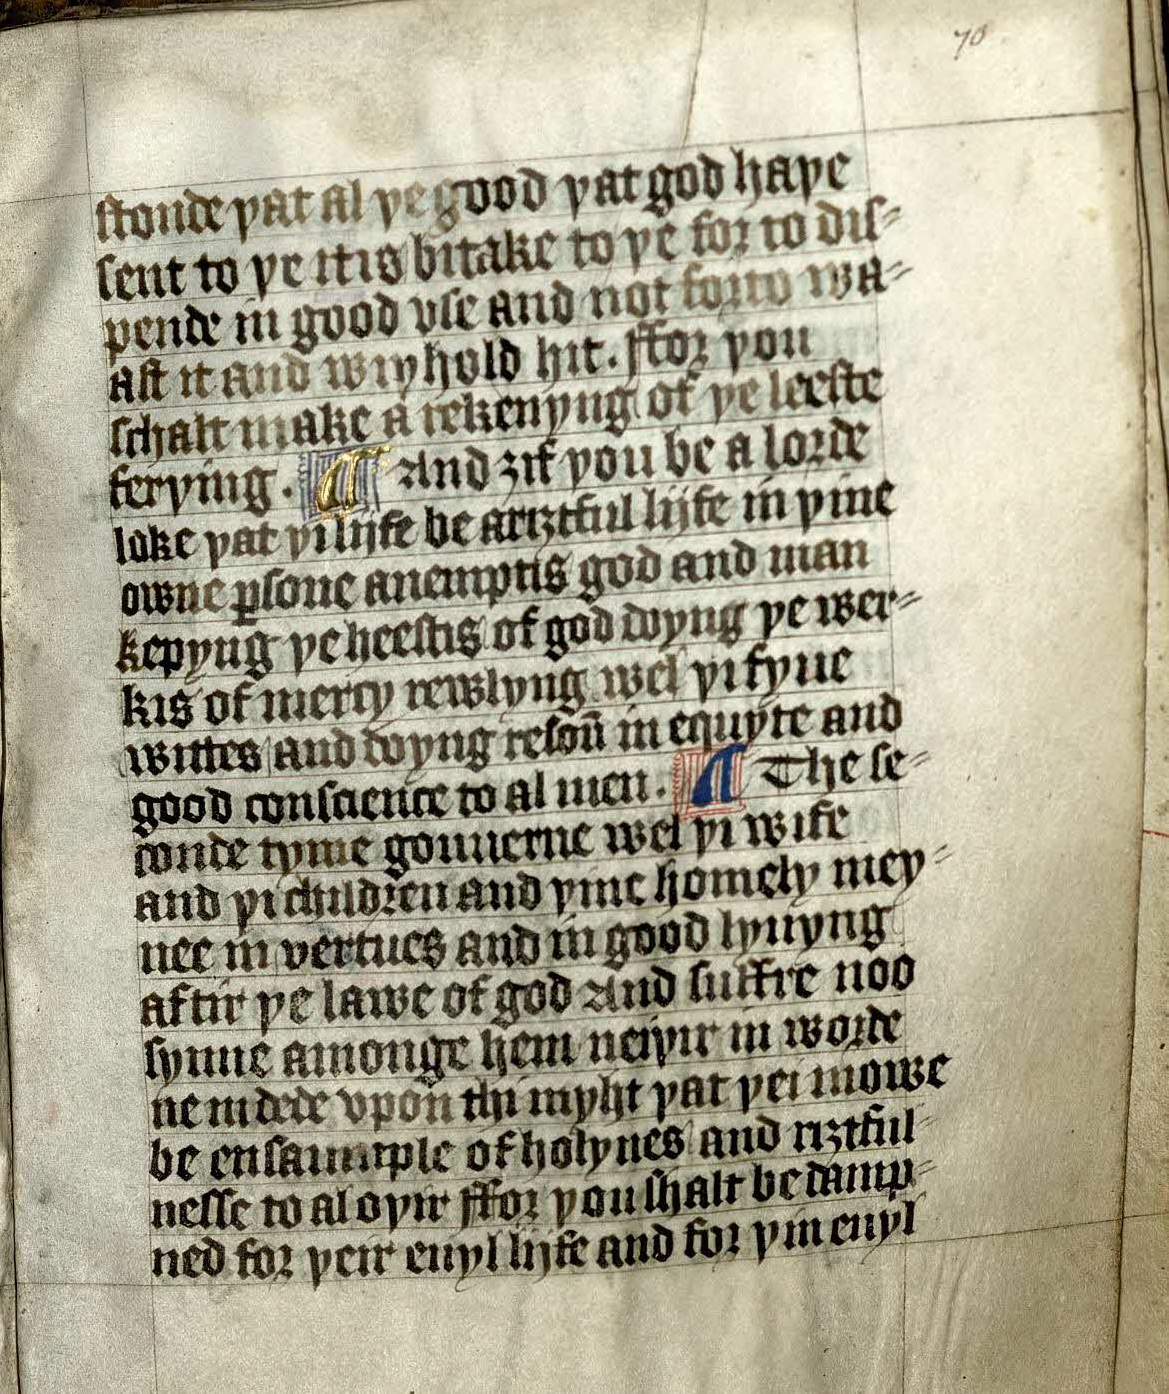 70
stonde þat al þe good þat god haþe
sent to þe it is bitake to þe for to dis-
pende in good vse and not forto wa-
ast it and wiþhold hit. ffor þou
schalt make a rekenyng of þe leeste
ferþing. ¶ And ȝif þou be a lorde
loke þat þi lijfe be a riȝtful lijfe in þine
owne ꝑsone anemptis god and man
kepyng þe heestis of god doyng þe wer-
kis of mercy rewlyng wel þi fyue
wittes and doyng resoū in equyte and
good conscience to al men. ¶ The se-
conde tyme gouuerne wel þi wife
and þi children and þine homely mey-
nee in vertues and in good lyuyng
aftir þe lawe of god And suffre noo
synne amonge hem neiþir in worde
ne in dede vpon thi myht þat þei mowe
be ensaumple of holynes and riȝtful-
nesse to al oþir ffor þou shalt be damp-
ned for þeir euyl lijfe and for þin euyl